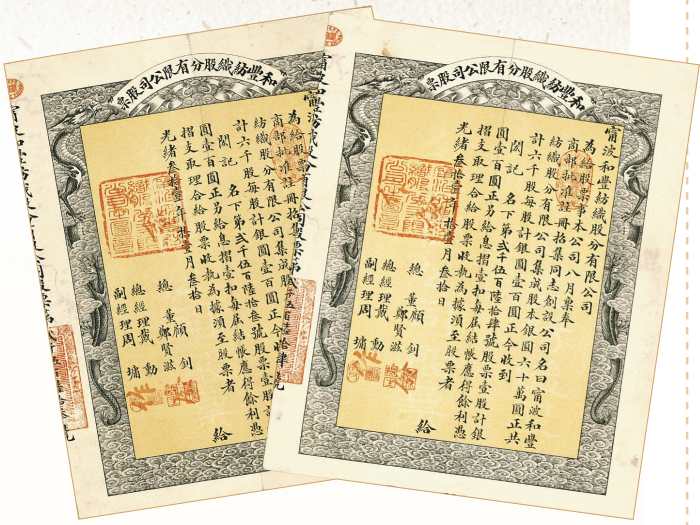 和豐紡織股分有限公司股票
甯波和豐紡織股分有限公司
為給股票事本公司八月票奉
商部批准註冊招集同志創設公司名曰甯波和豐
紡織股分有限公司集成股本銀圓六十萬圓正共
計六千股每股計銀圓壹百圓正今收到
閎記 名下第弍千伍百陸拾肆號股票壹股計銀
圓壹百圓正另給息摺壹扣每屆結帳應得餘利憑
摺支取理合給股票收執為據須至股票者
光緒叁拾壹年拾壹月叁拾日
總董顧釗
鄭賢滋
總經理戴勳
副經理周墉
給
和豐紡織股分有限公司股票
為給股票
商部批准註冊招集
紡織股分有限公司集成股
計六千股每股計銀圓壹百圓正今收
閎記 名下第弍千伍百陸拾叁號股票壹股計
圓壹百圓正另給息摺壹扣每屆結帳應得餘利憑
摺支取理合給股票收執為據須至股票者
光緒叁拾壹年拾壹月叁拾日
總董顧釗
鄭賢滋
總經理戴勳
副經理周墉
給